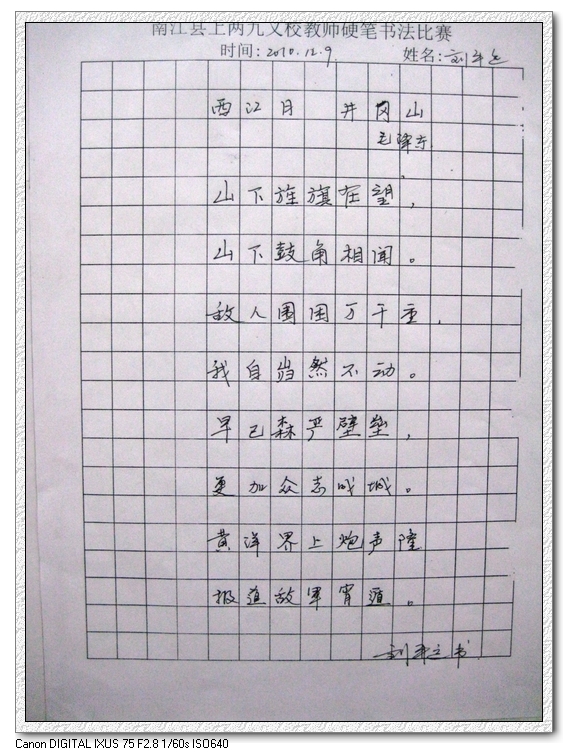 南江县上两九义校教师硬笔书法比赛
时间:2010.12.9 姓名:刘
西江月 井冈山
毛泽东
山下旌旗在望,
山下鼓角相闻。
敌人围困万千重,
我自岿然不动。
早已森严壁垒,
更加众志成城。
黄洋界上炮声隆
报道敌军宵遁。
刘 书
Canon DIGITAL IXUS 75 F2.8 1/60s ISO640